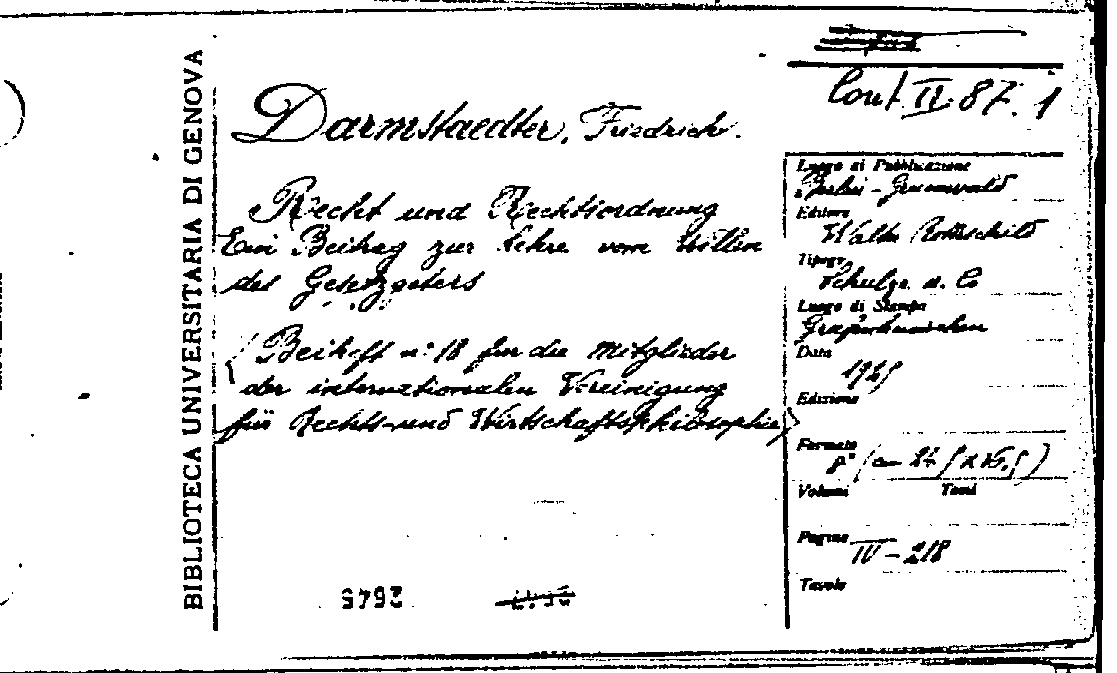 BIBLIOTECA UNIVERSITARIA DI GENOVA
Darmstaedter, Friedrich.
Recht und Rechtsordnung
Ein Beitrag zur Lehre vom Willen
des Gesetzgebers
(Beiheft n: 18 für die Mitglieder
der internationalen Vereinigung
für Rechts- und Wirtschaftsphilosophie)
2645
Cont II 87. 1
Luogo di Pubblicazione
Berlin - Grunewald
Editore
Walter Rothschild
Tipogr.
Schulze u. Co
Luogo di Stampa
Gräfenhainichen
Data
1925
Edizione
Formato
8°
Volumi Tomi
Pagine
IV - 218
Tavole